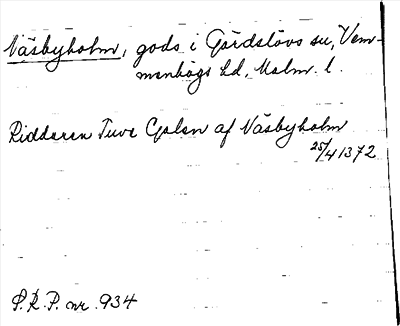 Näsbyholm, gods i Gärdslövs su, Vem-
menhögs hd, Malm. l.
Riddaren Tuve Galen af Näsbyholm
25/4 1372
S.R.P. nr. 934